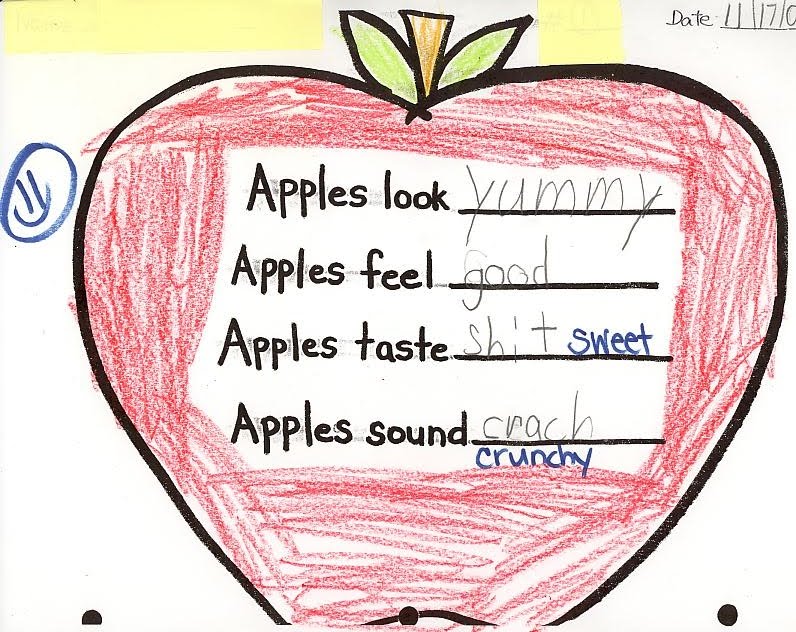 Date 11/17/0
Apples look yummy
Apples feel good
Apples taste shit sweet
Apples sound crach
crunchy